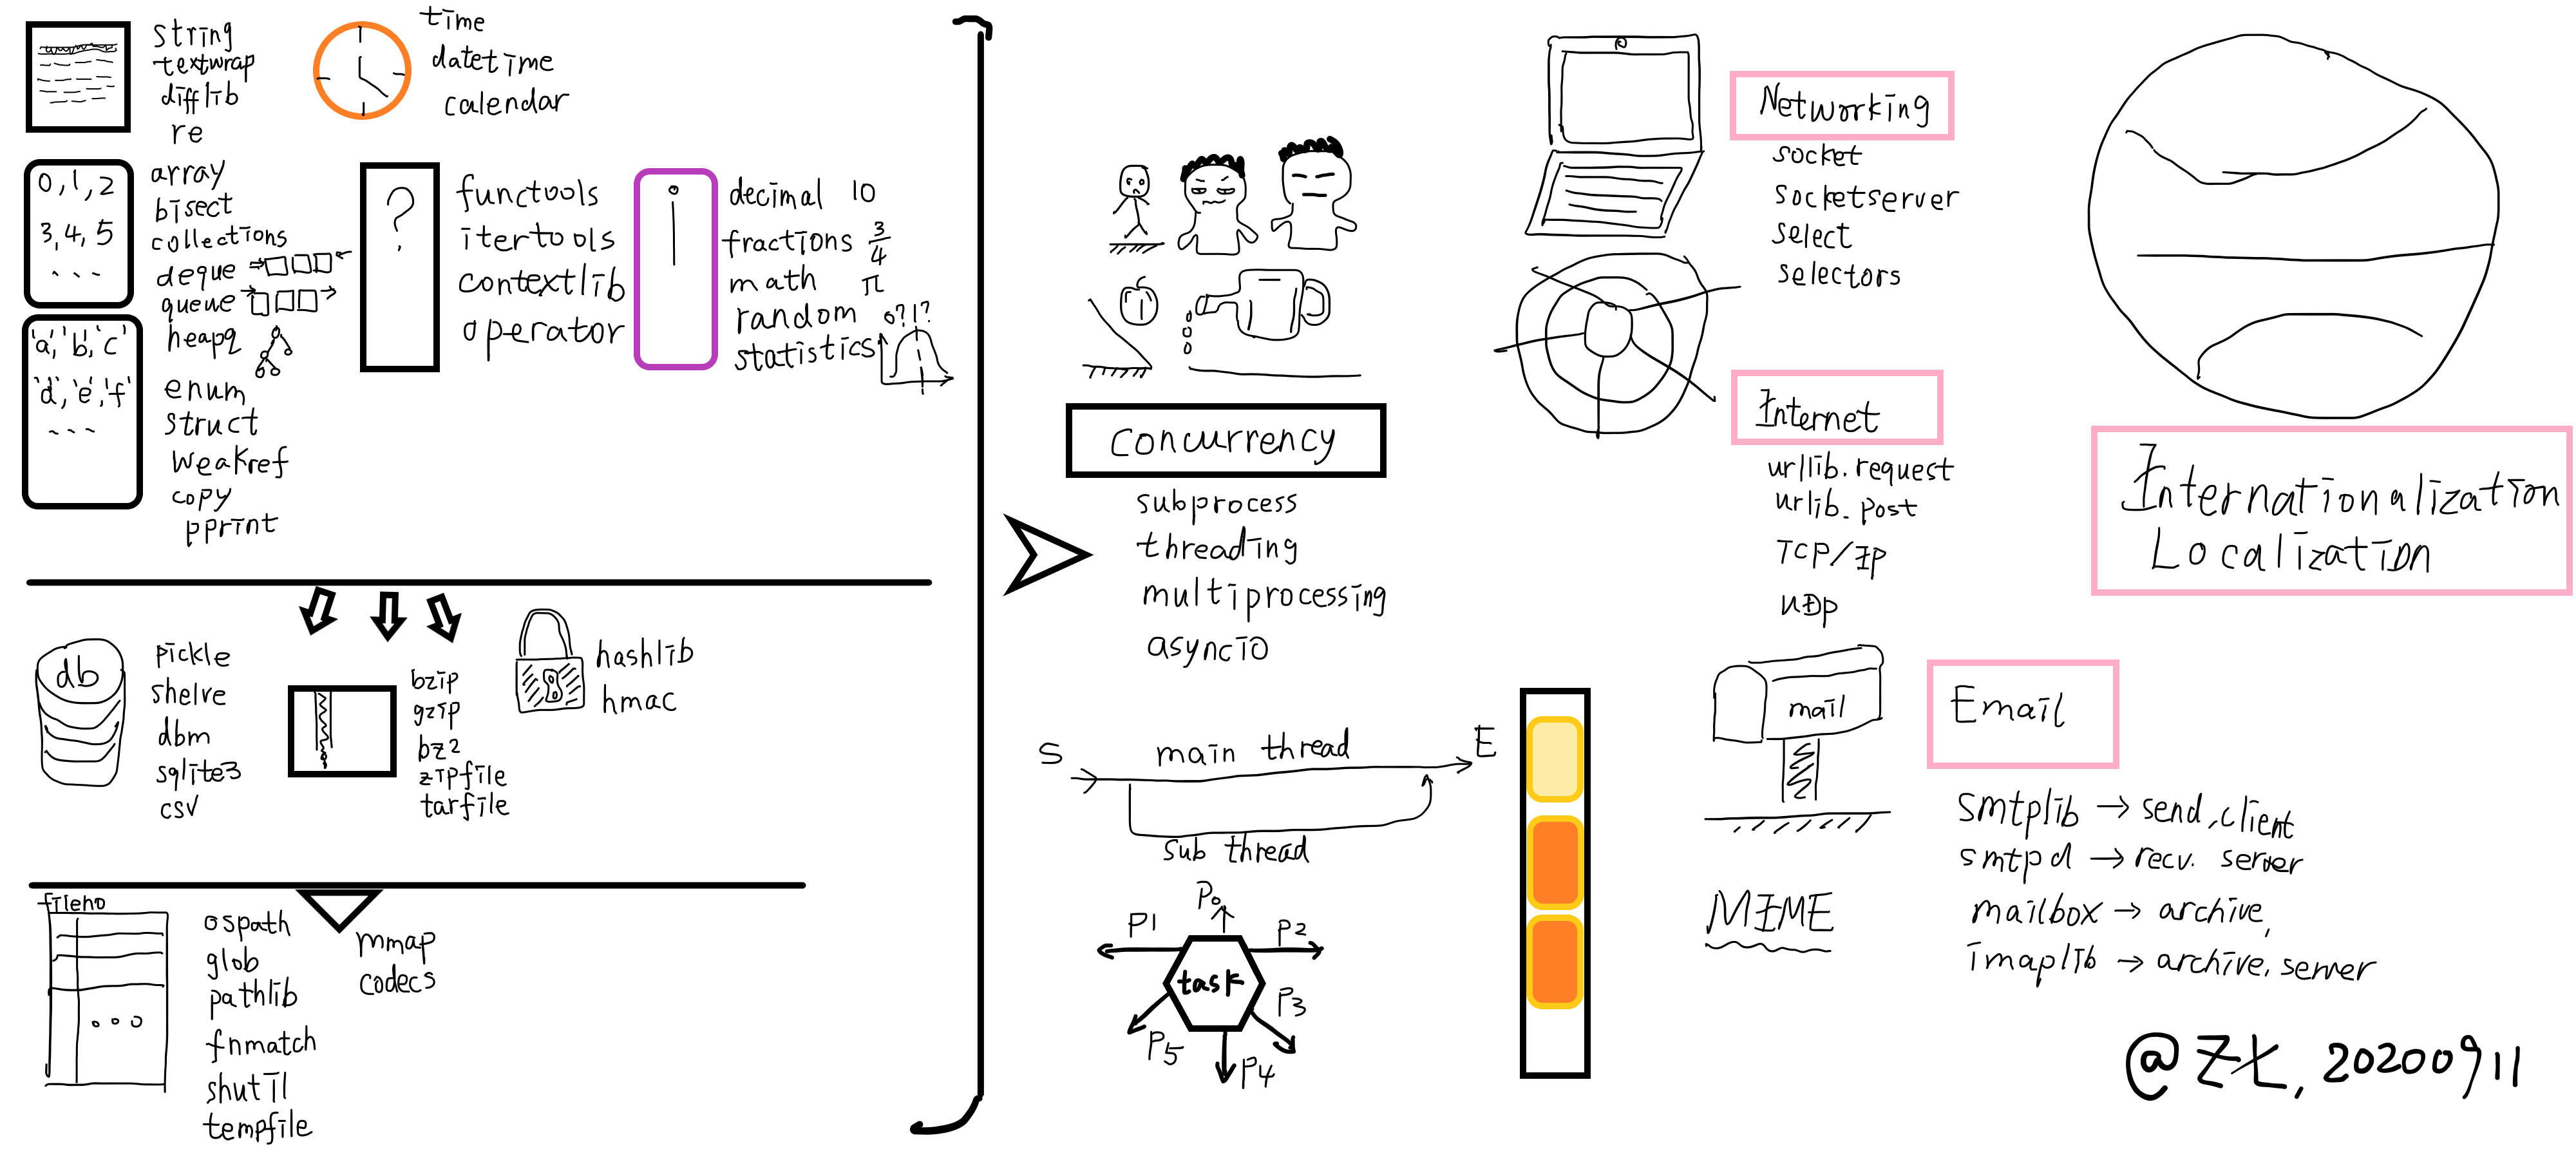 string
textwrap
difflib
re
time
datetime
calendar
0, 1, 2
3, 4, 5
...
array
bisect
collections
deque
queue
heapq
enum
struct
weakref
copy
pprint
'a', 'b', 'c'
'd', 'e', 'f'
...
?
functools
itertools
contextlib
operator
decimal 10
fractions 3/4
math π
random 0?1?
statistics
db
pickle
shelve
dbm
sqlite3
csv
bzip
gzip
bz2
zipfile
tarfile
hashlib
hmac
fileno
ospath
glob
pathlib
fnmatch
shutil
tempfile
mmap
codecs
concurrency
subprocess
threading
multiprocessing
asyncio
S main thread E
sub thread
task
P0
P1
P2
P3
P4
P5
Networking
socket
socketserver
select
selectors
Internet
urllib.request
urlib.post
TCP/IP
UDP
mail
Email
smtplib → send, client
smtpd → recv. server
mailbox → archive,
imaplib → archive, server
MIME
Internationalization
Localization
, 20200911